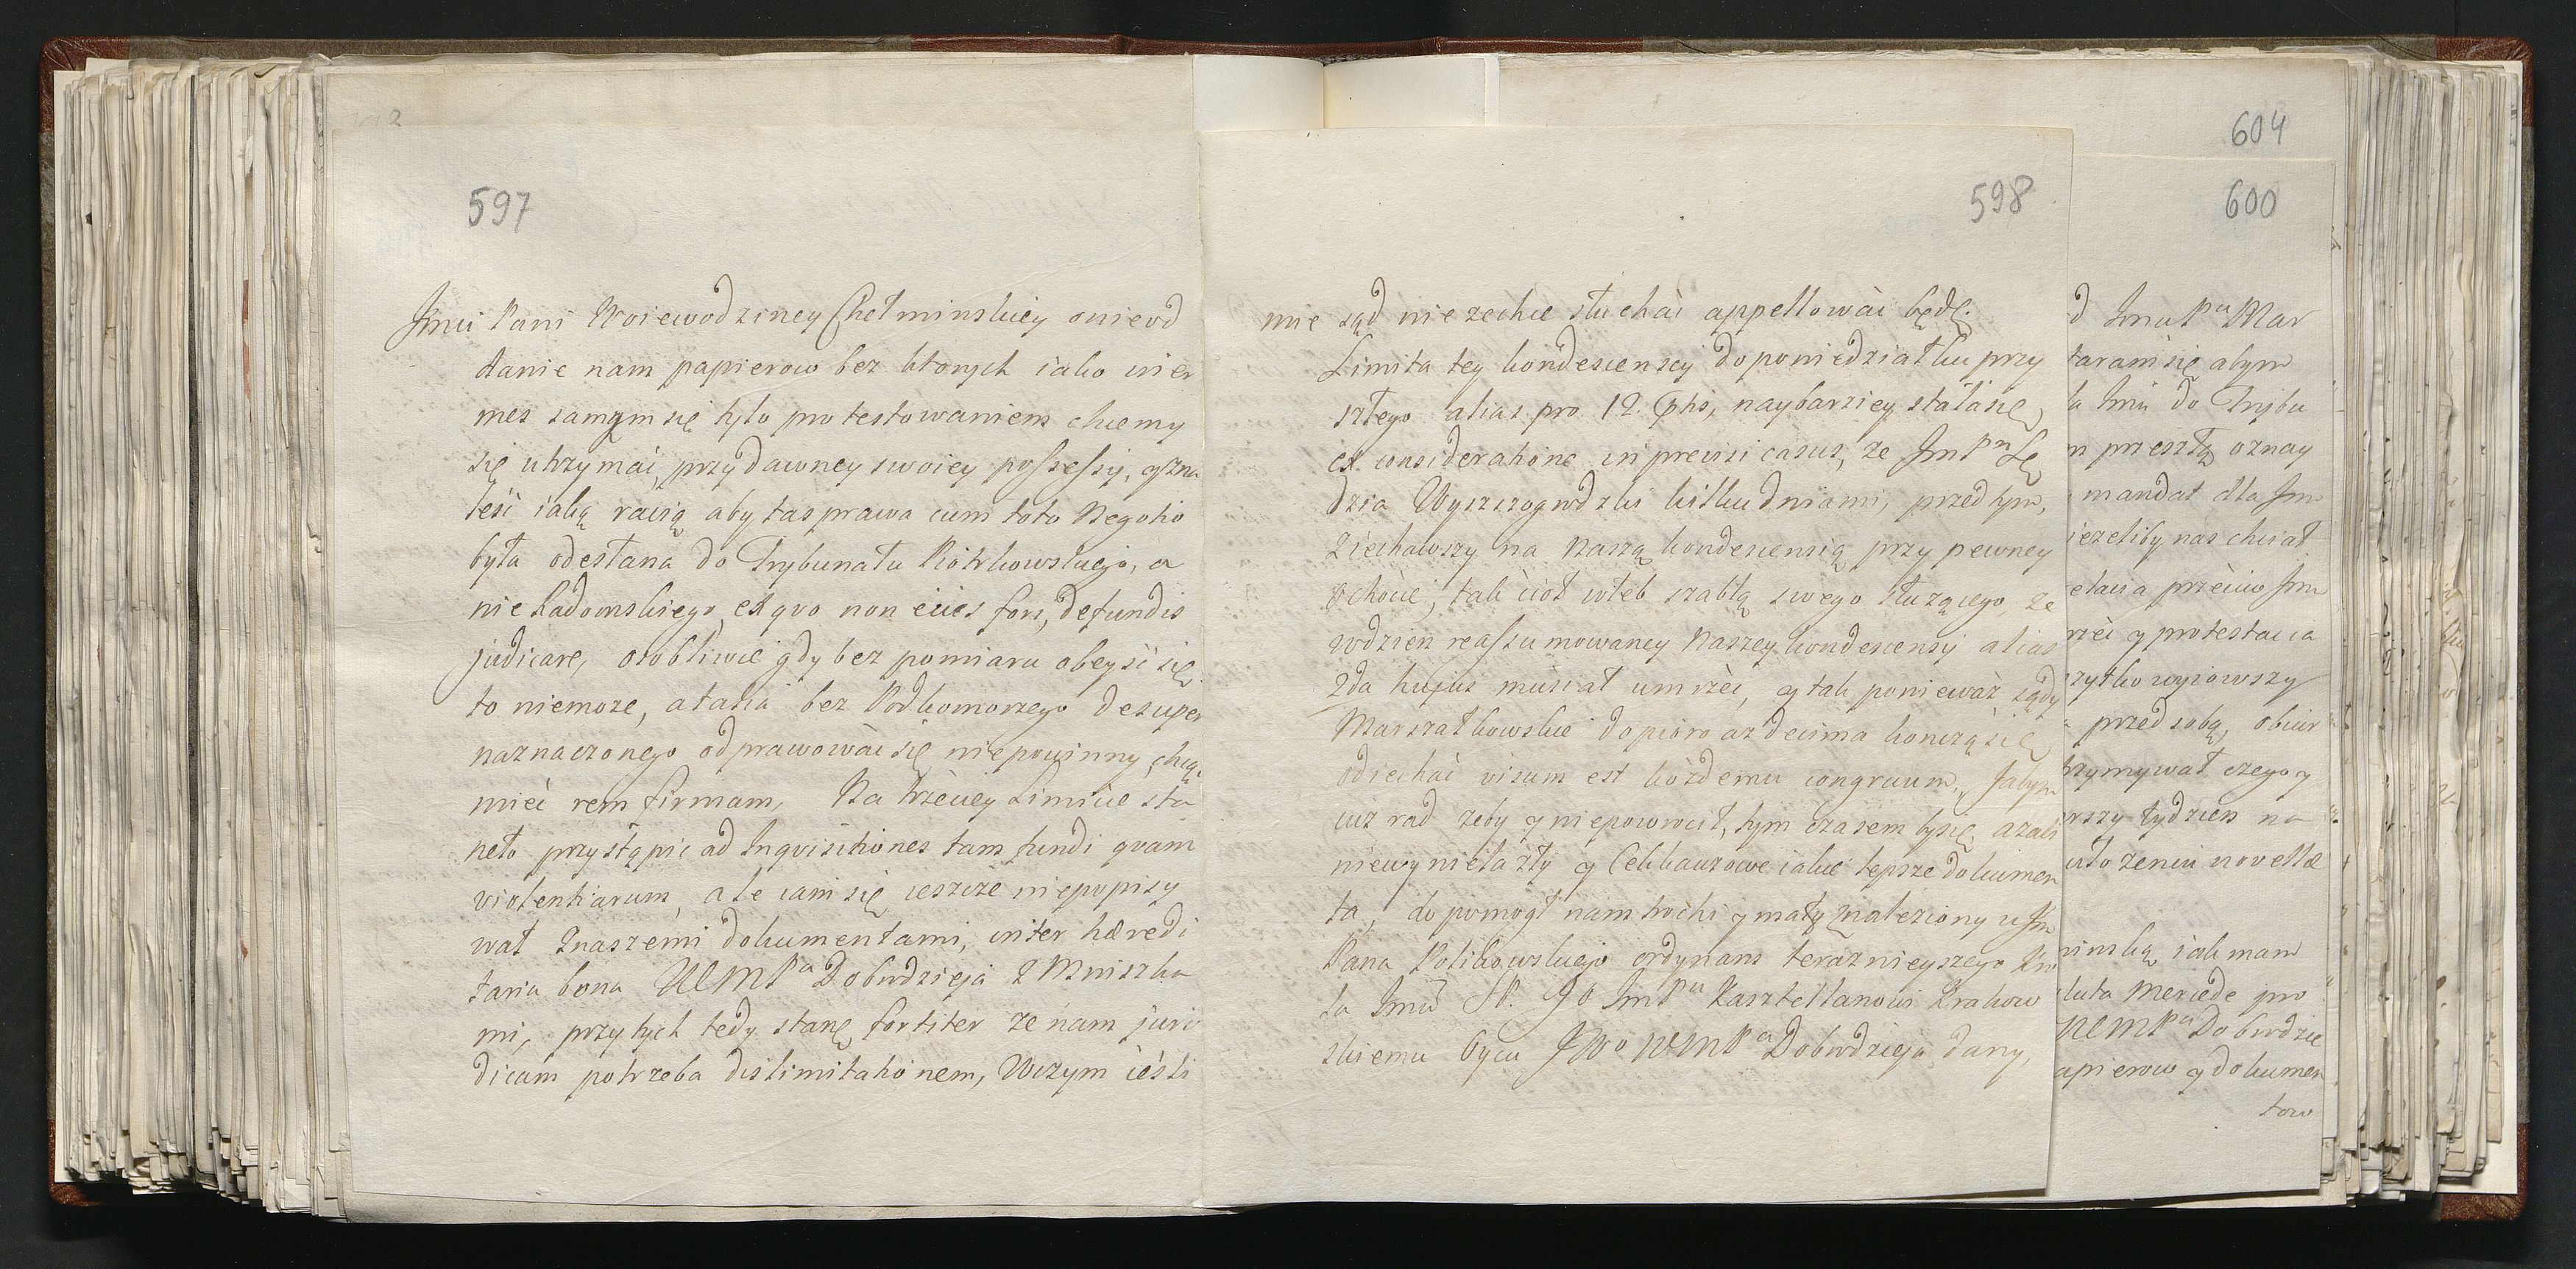 597
Jmći Pani Woiewodziney Chełminskiey onieod
danie nam papierow bez ktorych iako inier
mes samym się tylo protestowaniem chcemy
się utrzymać, przydawney swoiey possessij, y zna
leść iaką racią aby tasprawa cum toto Negotio
była odesłana do Trybunału Piotrkowskiego, a
nie Radomskiego, ex qvo non eius fori, de fundis
judicare, osobliwie gdy bez pomiaru obeyść się
to niemoze, atakia bez Podkomorzego desuper
naznaczonego odprawować się niepowinny, chcąc
mieć rem firmam, Na trzeciey Limicie sta
neło przystąpić ad Inqvisitiones tam fundi qvam
violentiarum, ale iam się ieszcze niepopisy
wał znaszemi dokumentami, inter hæredi
taria bona WMMPa Dobrdzieja z Mniszka
mi, przytych tedy stanę fortiter ze nam juri
dicam potrzeba dislimitationem, Wczym ieśli
598
mie sąd niezechce słuchać appellować będę.
Limita tey kondescensij doponiedziałku przy
szłego alias pro 12. Xbris, naybarziey stałasię,
ex consideratione inprevisi casus, ze JmPan Sę
dzia Wyszzogrodzki kilkudniami, przedtym,
ziechawszy na Naszą kondescensią przy pewney
ochocie, tak ciot włeb szablą swego służącego, ze
wdzien reassumowaney Naszey kondescensij alias
2da hujus musiał umrzeć, y tak ponieważ sądy
Marszałkowskie dopioro az decima konczą się
odiechać visum est kożdemu congruum. Jabym
iuz rad zeby y niepowrocił, tym czasem bysię azali
niewynielazły y Cekhauzowe iakie lepsze dokumen
ta, dopomogł nam trochi y mały znaleziony u Jm
Pana Polikowskiego ordynans teraznieyszego Kro
la Jmći SP. Jo JmPu Kasztellanowi Krakow
skiemu Oycu JWo WMMPa Dobrdzieja dany,
604
600
d JmuPu Mar
taram się abym
la Jmći do Trybu
m przeszłą oznay
mandat dla Jm
iezeliby nas chciał
elacia przeciw Jm
rzeć y protestacia
zytko wyiowszy
przed sobą, obiur
trzymywał czego y
wszy tydzien na
ułozeniu novellæ
minską iak mam
luta Mercede pro
WMMPa Dobrdzie
apierow y dokumen
tow